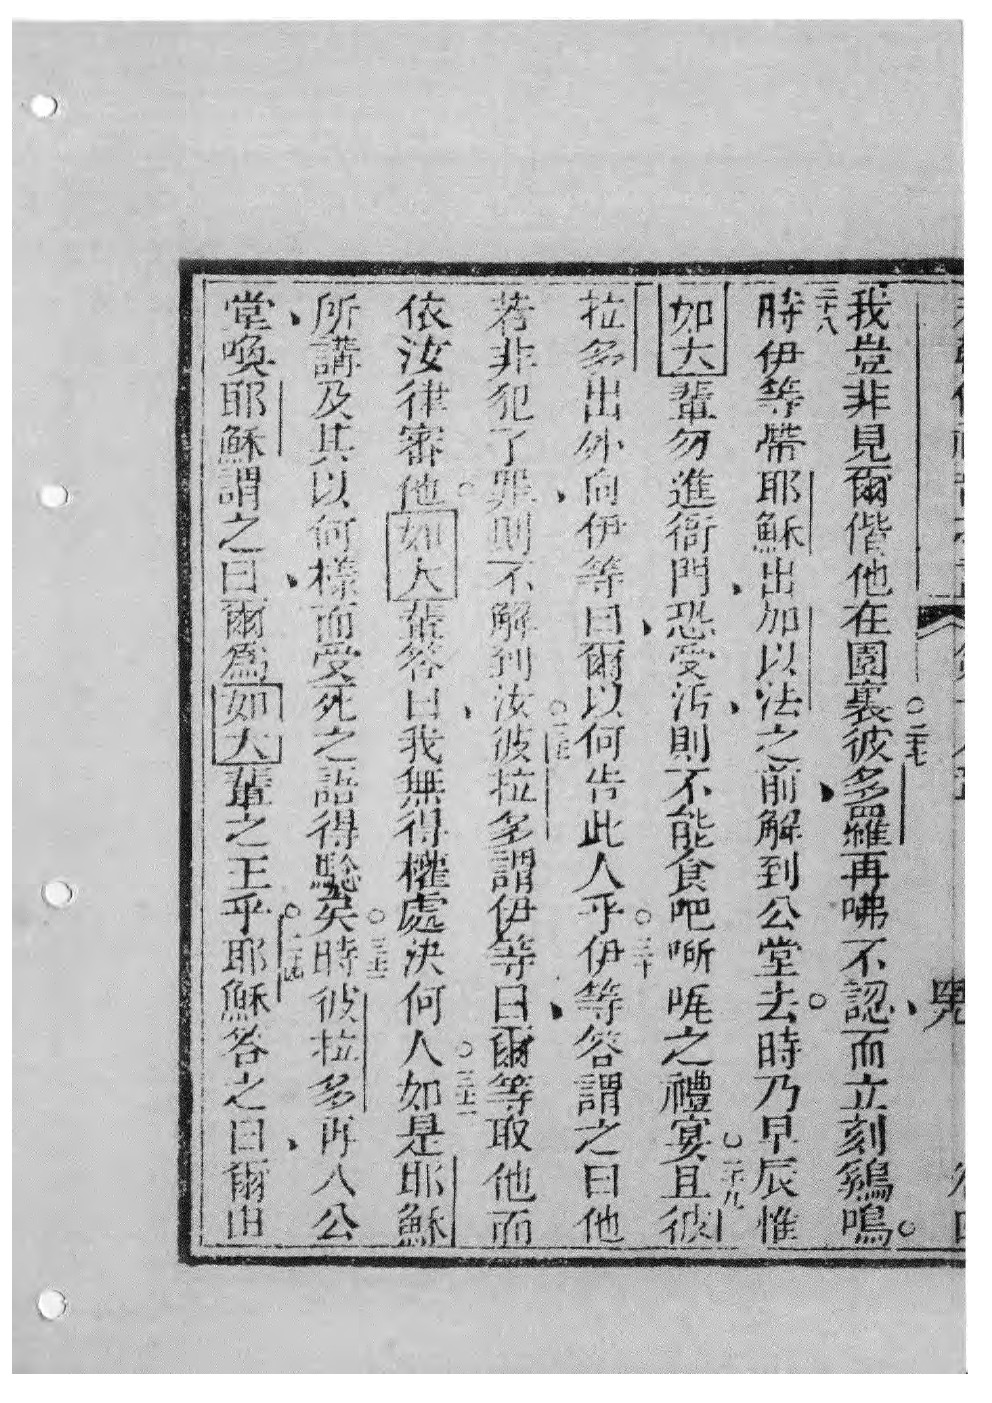 我豈非見爾偕他在園裏○二十七彼多羅再咈不認而立刻鷄鳴○
三十八時伊等帶耶穌出加以法之前解到公堂去○時乃早辰惟
如大輩勿進衙門恐受污則不能食吧㗭㖇之禮宴○二十九且彼
拉多出外向伊等曰爾以何告此人乎○三十伊等答謂之曰他
若非犯了罪則不解到汝○三十一彼拉多謂伊等曰爾等取他而
依汝律審他○如大輩答曰我無得權處決何人○三十二如是耶穌
所講及其以何樣而受死之語得驗矣○三十三時彼拉多再入公
堂喚耶穌謂之曰爾爲如大輩之王乎○三十四耶穌答之曰爾由